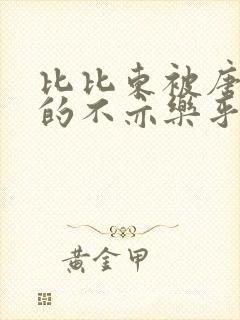 比比东被唐
的不亦乐乎
黄金甲